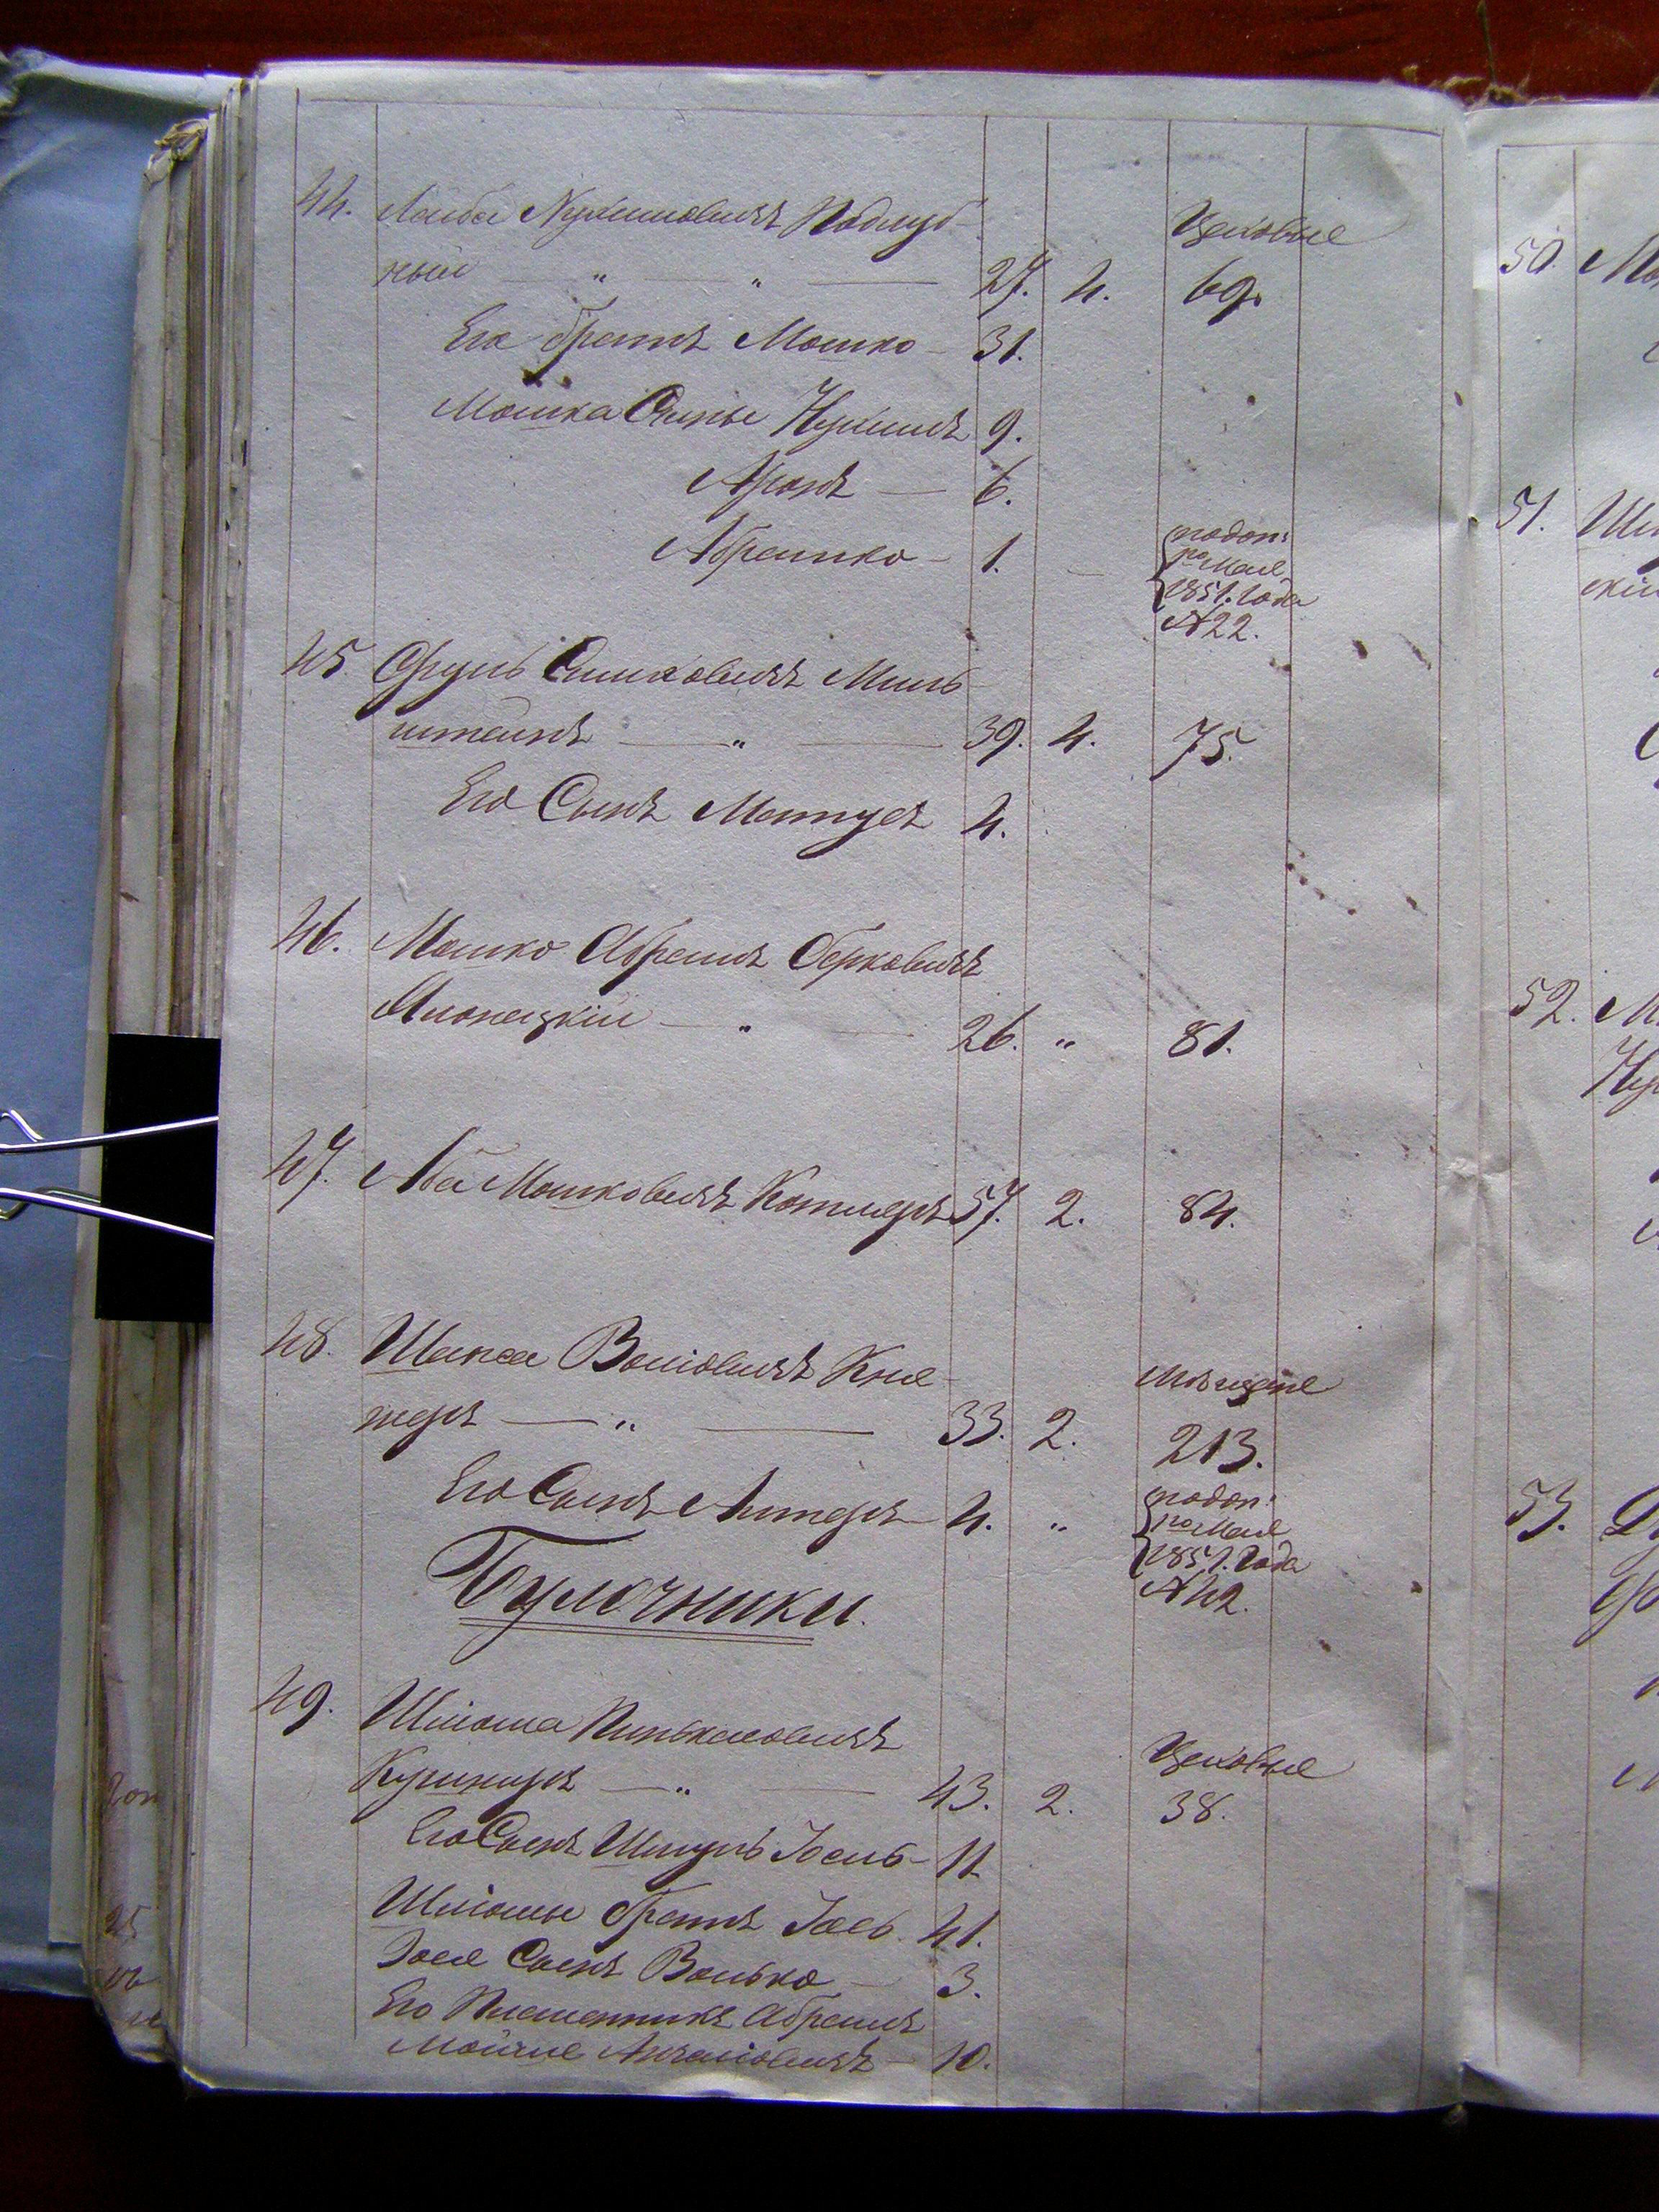 44. Лейба Нухимовичъ Поддуб-
ный — " — " — 27. 4. Цеховые 69.
Его братъ Мошко — 31.
Мошка Сыны Нухимъ 9.
Аронъ — 6.
Абрамко — 1. — подоп:
по мая
1851. Года
№ 22.
45. Сруль Симховичъ Миль-
штейнъ — " — 39. 4. 75.
Его Сынъ Матусъ 4.
46. Мошко Абрамъ Берковичъ
26. " 81.
47. Аба Мошковичъ Котляръ 57. 2. 84.
48. Шапса Волiовичъ Кне-
теръ — " — 33. 2. Мѣщане 213.
Его Сынъ Алтеръ — 4. " подоп:
по мая
1851. Года
№ 42.
Булочники.
49. Шліома Пинькасовичъ
— " — 43. 2. Цеховые 38.
Его Сынъ Шмуль Іосль — 11
Шліомы братъ Іось. 41.
Іося Сынъ Волько — 3.
Его Племенникъ Абрамъ
Мойше — 10.
50. М
51. Ш
52. М
Ну
53.